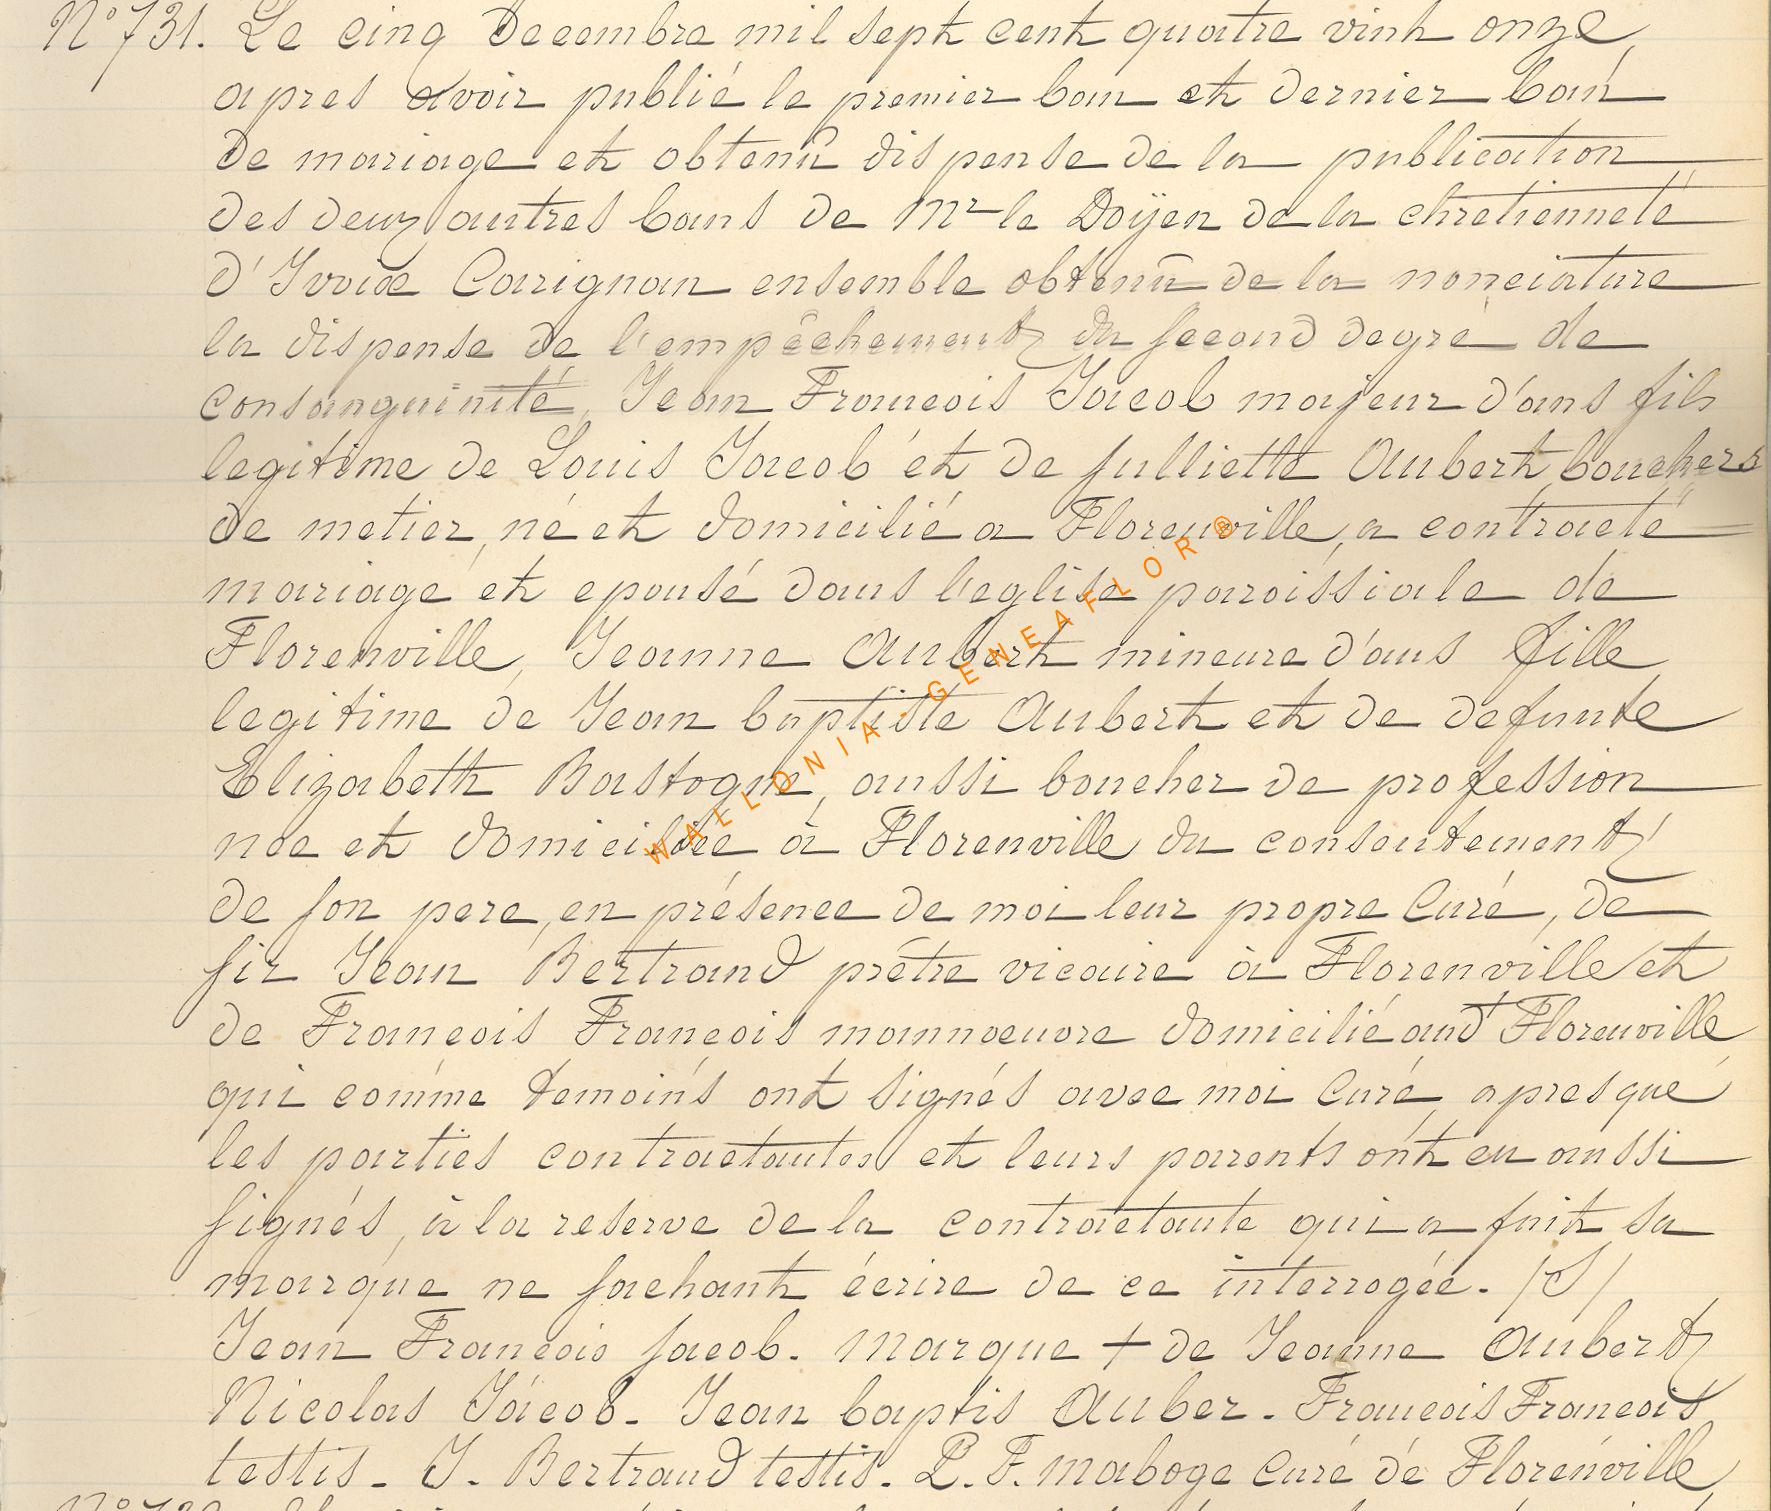 N° 731. Le cinq Decembre mil sept cent quatre vint onze,
apres avoir publié le premier ban et dernier ban
de mariage et obtenû dispense de la publication
des deux autres bans de Mr le Doÿen de la chretienneté
d'Ivoix Carignan ensemble obtenû de la nonciature
la dispense de l'empêchement du second degré de
consanguinité, Jean Francois Jacob majeur d'ans fils
legitime de Louis Jacob et de Julliette Aubert bouchers
de metier, né et domicilié a Florenville, a contracté
mariage et epousé dans l'eglise paroissiale de
Florenville, Jeanne Aubert mineure d'ans fille
legitime de Jean baptiste Aubert et de defunte
Elizabeth Bastogne, aussi boucher de profession
née et domiciliée à Florenville du consentement
de son pere, en présence de moi leur propre Curé, de
sir Jean Bertrand prêtre vicaire à Florenville et
de Francois Francois mannoeuvre domicilié audt Florenville
qui comme temoins ont signés avec moi Curé, apres que
les parties contractantes et leurs parents ont eu aussi
signés, à la reserve de la contractante qui a fait sa
marque ne sachant écrire de ce interrogée. /S/
Jean Francois Jacob. Marque + de Jeanne Aubert
Nicolas Jacob. Jean baptis Auber. Francois Francois
testis. J. Bertrand testis. P. F. maboge Curé de Florenville,
WALLONIA-GENEAFLOR®